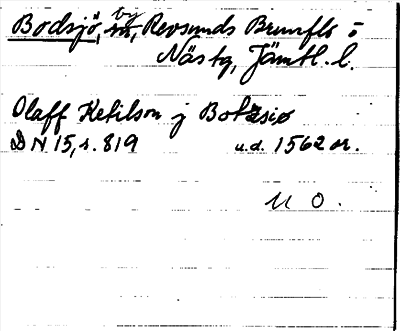 Bodsjö, by, Revsunds Brunflo o
Näs tg, Jämtl. l.
Olaff Ketilson j Botzsiø
D N 15, s. 819 u.d. 1562 or.
M O.